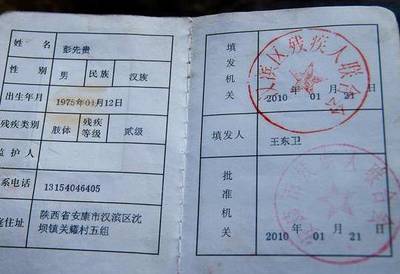 姓名 彭先贵
性别 男 民族 汉族
出生年月 1975年04月12日
残疾类别 肢体 残疾等级 贰级
监护人
系电话 13154046405
庭住址 陕西省安康市汉滨区沈
坝镇关耀村五组
填发机关
汉滨区残疾人联合会
2010 01 21
填发人 王东卫
批准机关
2010 01 21